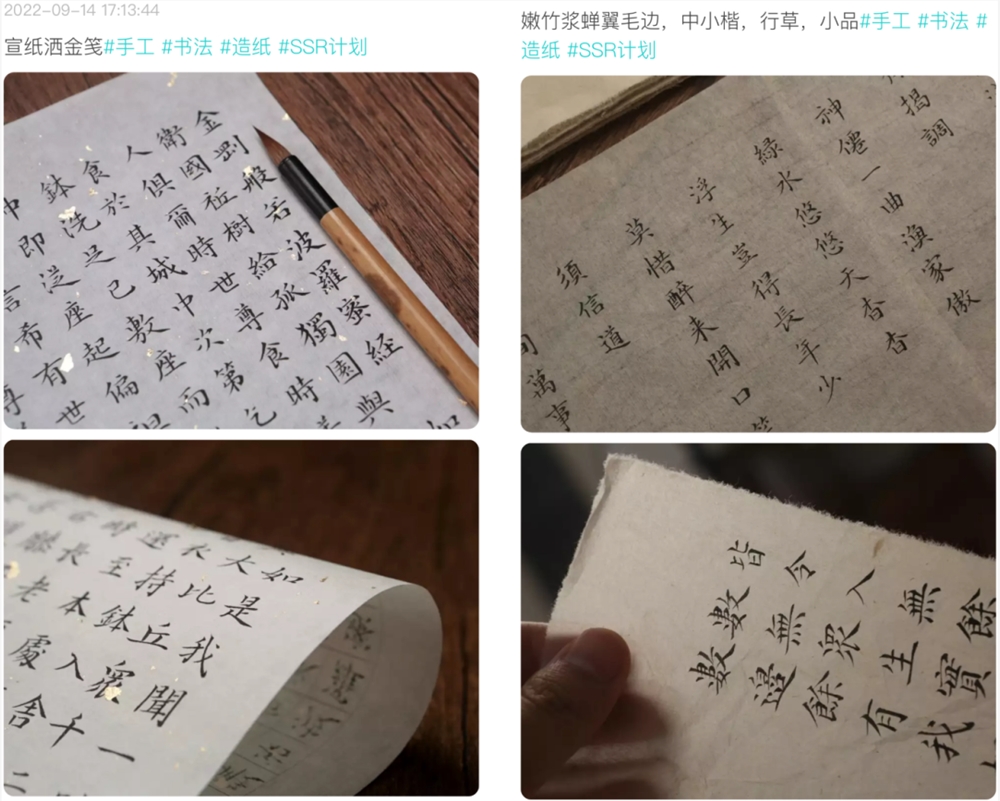 2022-09-14 17:13:44
宣纸洒金笺#手工 #书法 #造纸 #SSR计划
金剛般若波羅蜜經
衛國祇樹給孤獨園與
人俱爾時世尊食時
食於其城中次第乞
鉢洗足已敷座而
即從座起偏袒
言希有世
尊
如是我聞一
大比丘眾千二
衣持鉢入舍
還至本處
時長老
嫩竹浆蝉翼毛边，中小楷，行草，小品#手工 #书法 #
造纸 #SSR计划
揭調
神僊一曲漁家傲
綠水悠悠天杳杳
浮生豈得長年少
莫惜醉来開口笑
須信道
萬事
餘實我
無生有
入眾餘
令無邊
皆數數